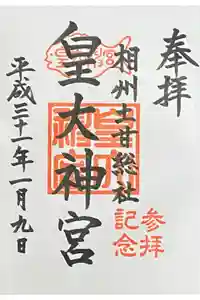 奉拝
相州土甘総社
皇大神宮
参拝
記念
平成三十一年一月九日